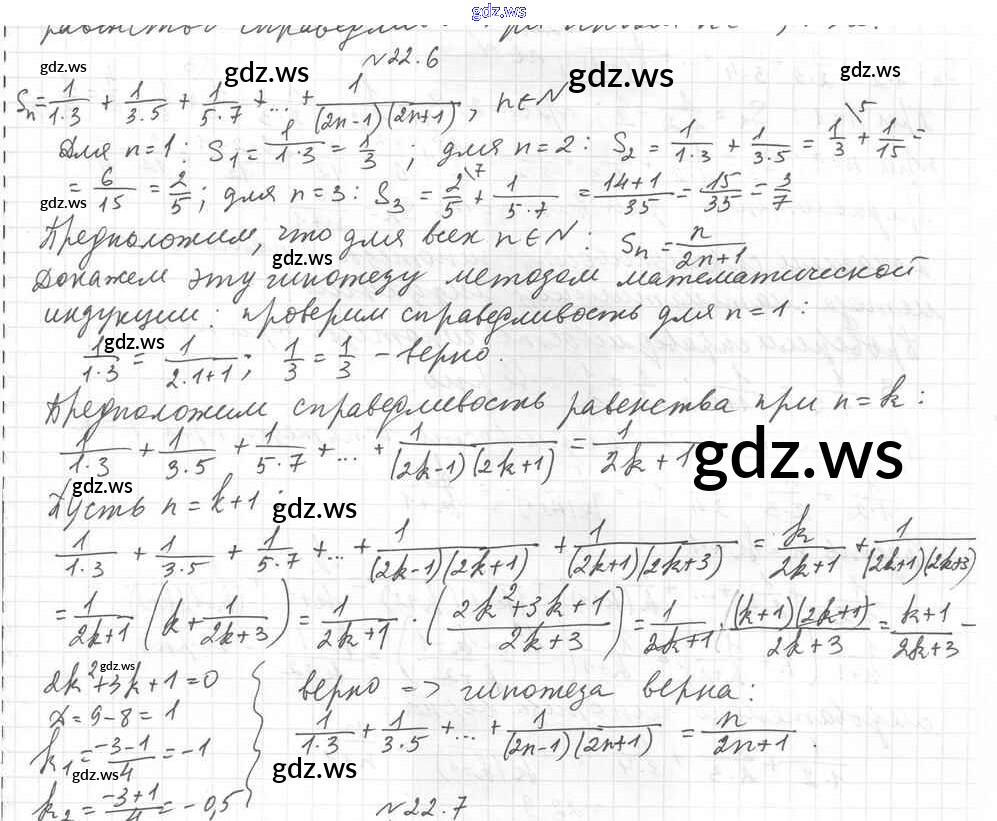 gdz.ws
равенство справедливо при
№22.6
gdz.ws gdz.ws gdz.ws gdz.ws
Sₙ = 1/(1·3) + 1/(3·5) + 1/(5·7) + ... + 1/((2n-1)(2n+1)), n∈N
Для n=1: S₁ = 1/(1·3) = 1/3; для n=2: S₂ = 1/(1·3) + 1/(3·5) = 1/3\5 + 1/15 =
= 6/15 = 2/5; для n=3: S₃ = 2/5\7 + 1/(5·7) = (14+1)/35 = 15/35 = 3/7
gdz.ws
Предположим, что для всех n∈N: Sₙ = n/(2n+1)
gdz.ws
Докажем эту гипотезу методом математической
индукции: проверим справедливость для n=1:
gdz.ws
1/(1·3) = 1/(2·1+1); 1/3 = 1/3 – верно.
Предположим справедливость равенства при n=k:
1/(1·3) + 1/(3·5) + 1/(5·7) + ... + 1/((2k-1)(2k+1)) = 1/(2k+1)
gdz.ws
gdz.ws
Пусть n=k+1:
gdz.ws
1/(1·3) + 1/(3·5) + 1/(5·7) + ... + 1/((2k-1)(2k+1)) + 1/((2k+1)(2k+3)) = k/(2k+1) + 1/((2k+1)(2k+3))
= 1/(2k+1) (k + 1/(2k+3)) = 1/(2k+1) · ((2k²+3k+1)/(2k+3)) = 1/(2k+1) · (k+1)(2k+1)/(2k+3) = (k+1)/(2k+3) –
gdz.ws
2k²+3k+1=0
D=9-8=1
k₁ = (-3-1)/4 = -1
gdz.ws
k₂ = (-3+1)/4 = -0,5
верно => гипотеза верна:
1/(1·3) + 1/(3·5) + ... + 1/((2n-1)(2n+1)) = n/(2n+1).
gdz.ws
№22.7